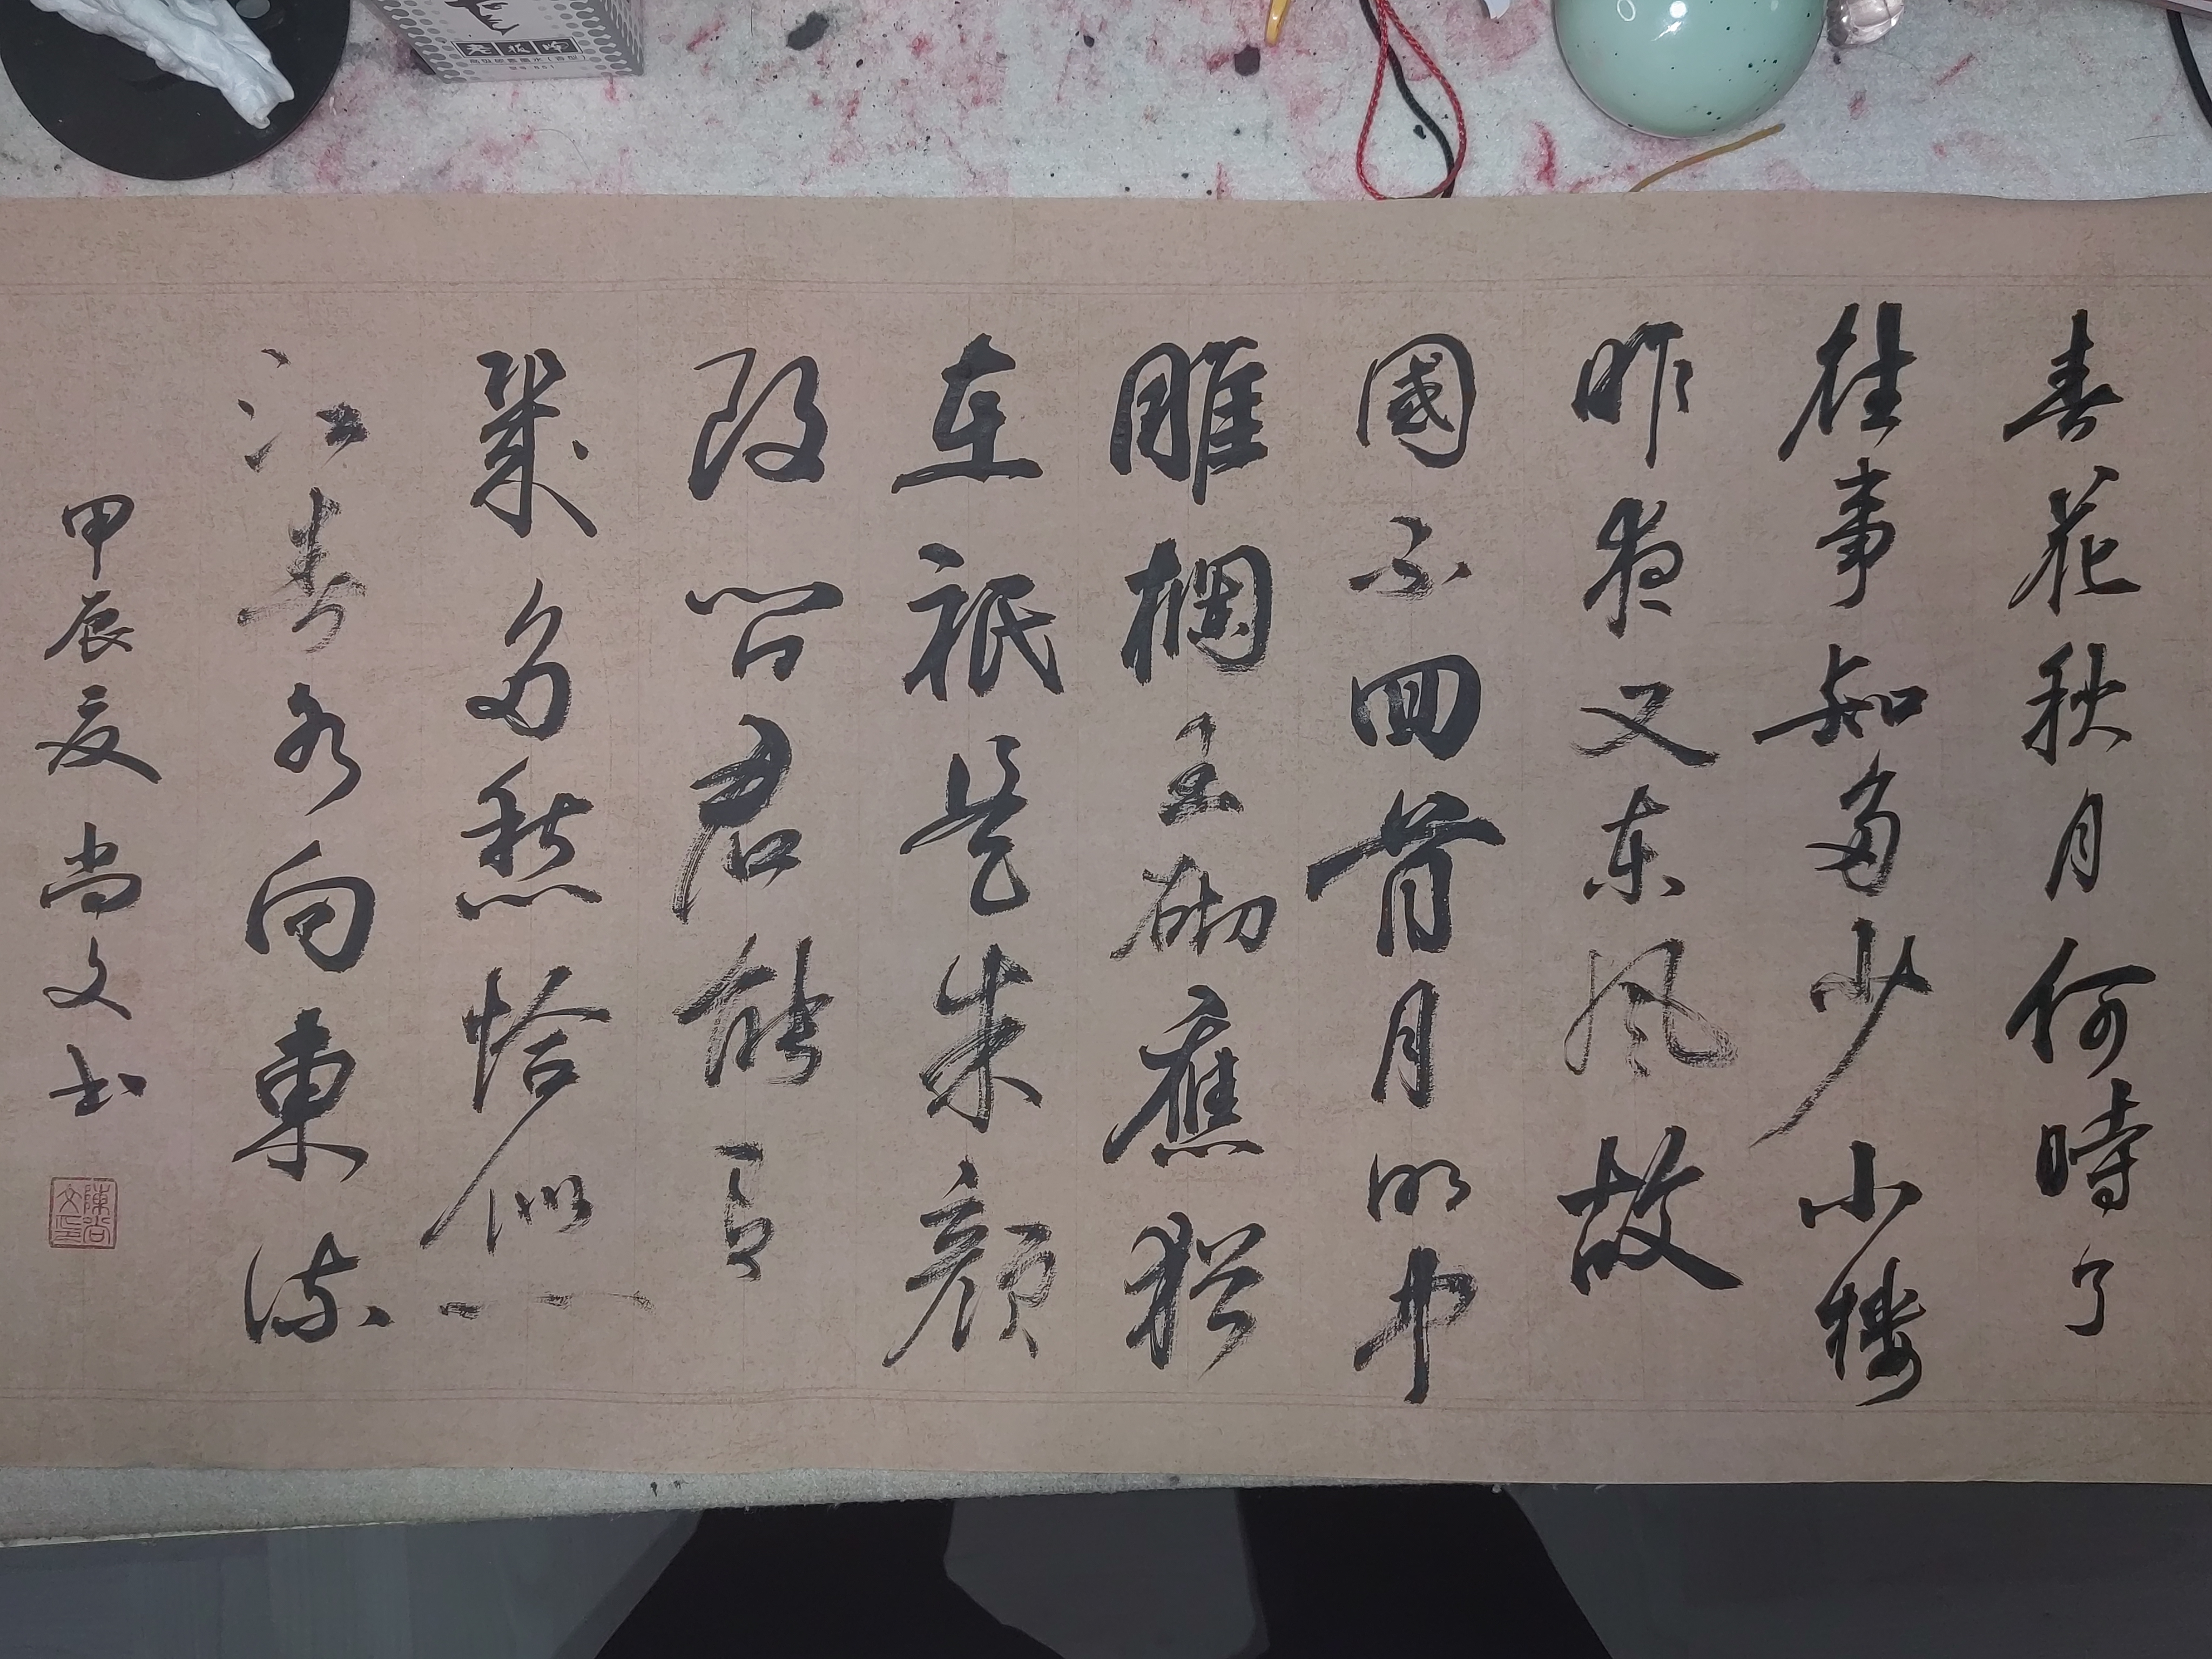 春花秋月何時了
往事知多少小樓
昨夜又东风故
國不回首月明中
雕欄玉砌應猶
在祇是朱顏
改問君能有
幾多愁恰似一
江春水向東流
甲辰夏尚文书
陳尚文印